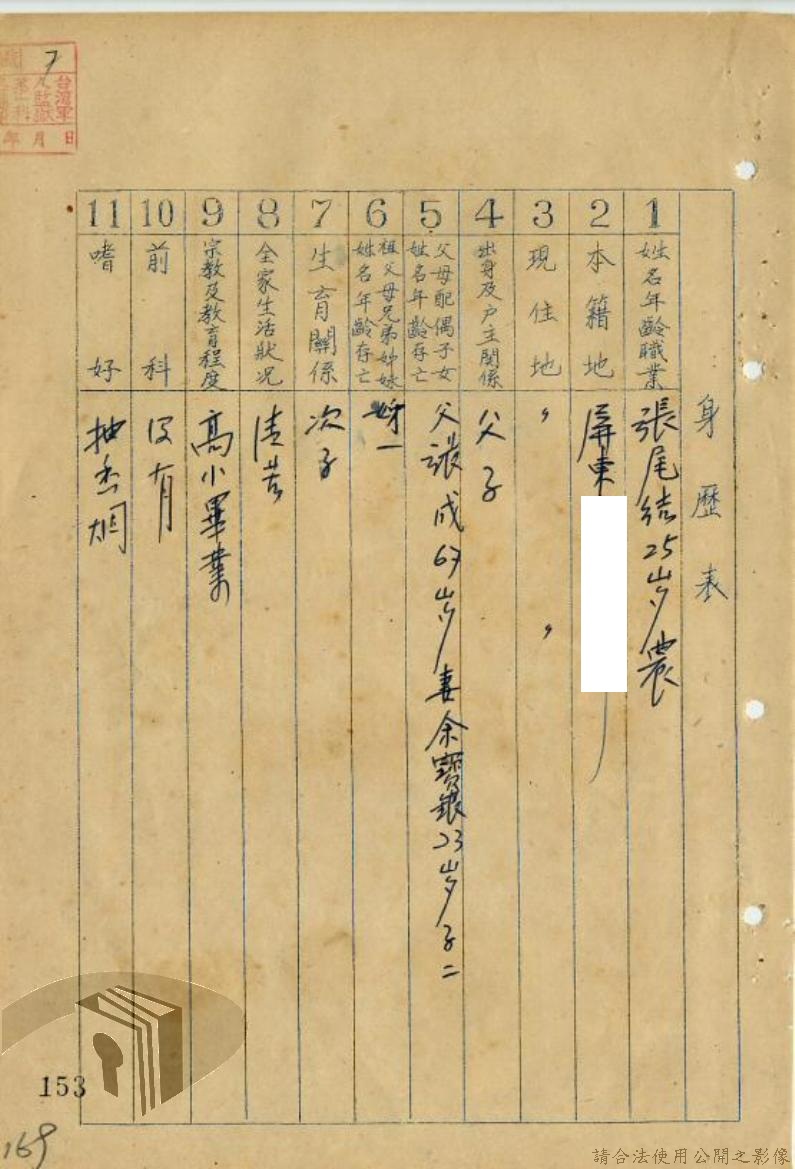 身歷表
1
姓名年齡職業
張尾結25岁農
2
本籍地
屏東
3
現住地
〃 〃
4
出身及戶主關係
父子
5
父母配偶子女
姓名年齡存亡
父張成67岁妻余寶銀23岁子二
6
祖父母兄弟姉妹
姓名年齡存亡
一
7
生育關係
次子
8
全家生活狀况
清苦
9
宗教及教育程度
高小畢業
10
前科
沒有
11
嗜好
抽香烟
7
台灣軍
人監獄
第一科
年月日
153
169
請合法使用公開之影像